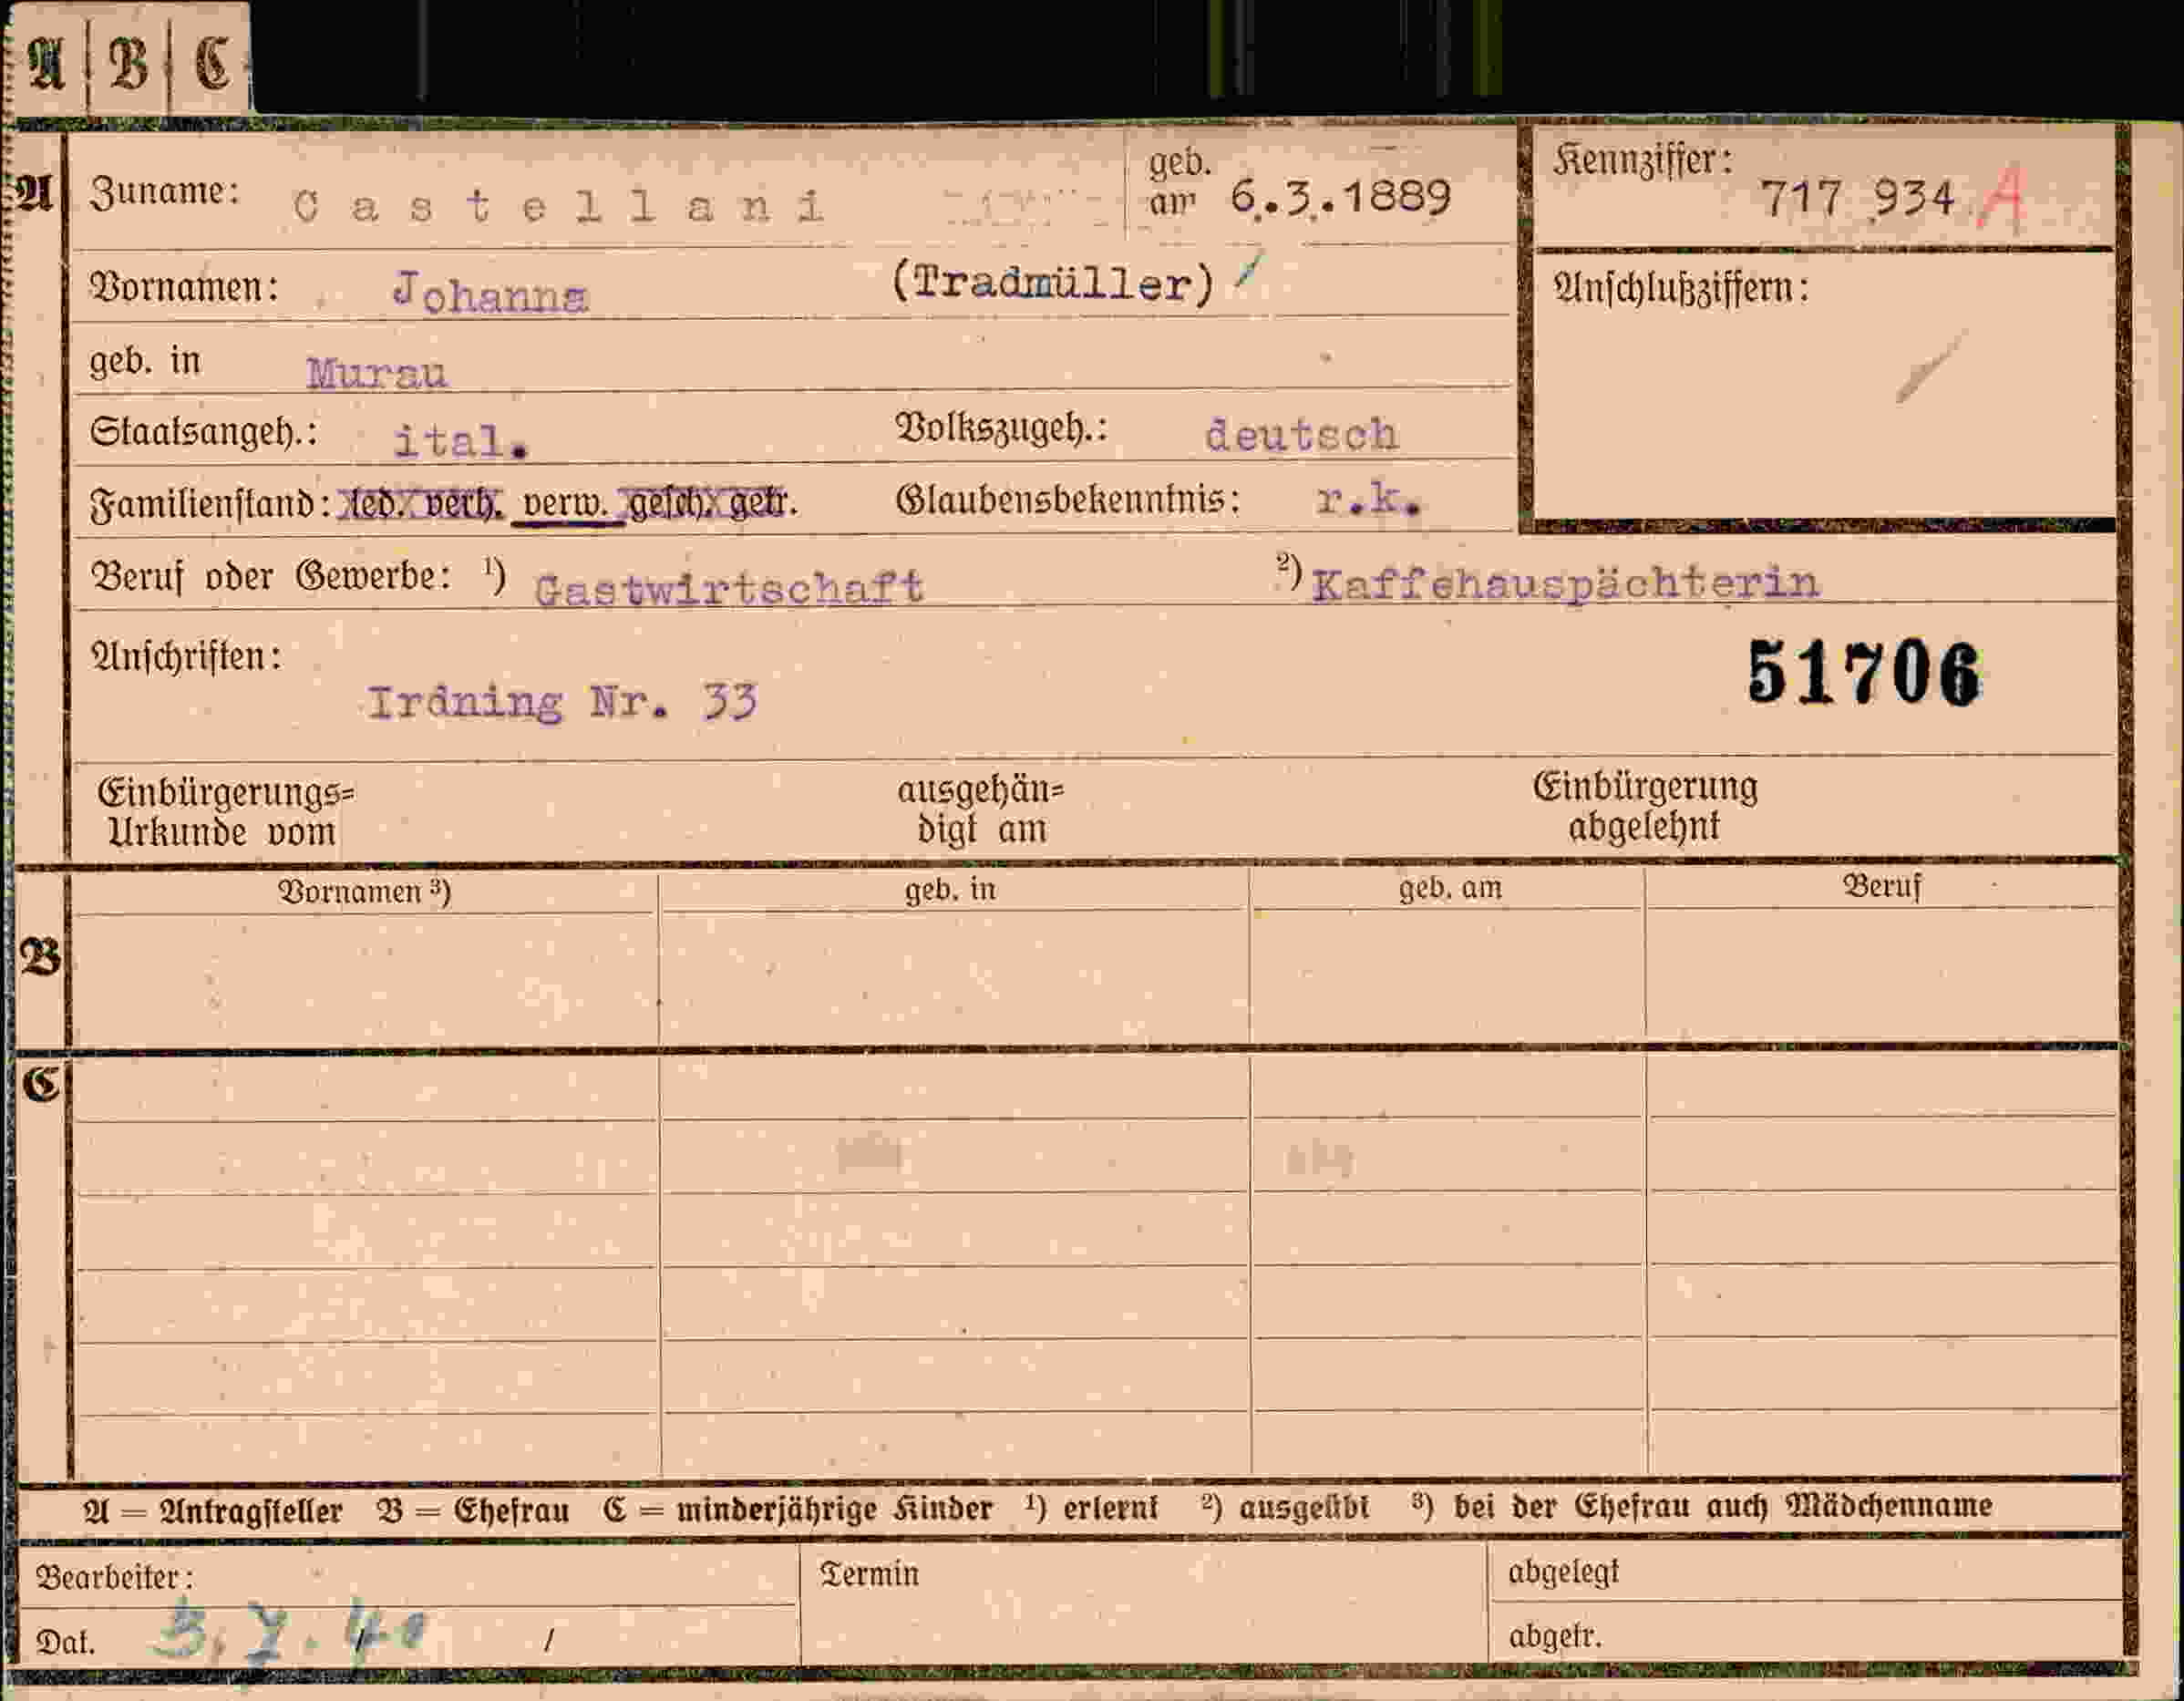 A B C
A Zuname: Castellani geb. am 6.3.1889 Kennziffer: 717 934 A
Vornamen: Johanna (Tradmüller) Anschlußziffern:
geb. in Murau
Staatsangeh.: ital. Volkszugeh.: deutsch
Familienstand: led. verh. verw. gesch. getr. Glaubensbekenntnis: r.k.
Beruf oder Gewerbe: ¹) Gastwirtschaft ²) Kaffehauspächterin
Anschriften: 51706
Irdning Nr. 33
Einbürgerungs= ausgehän= Einbürgerung
Urkunde vom digt am abgelehnt
Vornamen ³) geb. in geb. am Beruf
B
C
A = Antragsteller B = Ehefrau C = minderjährige Kinder ¹) erlernt ²) ausgeübt ³) bei der Ehefrau auch Mädchenname
Bearbeiter: Termin abgelegt
Dat. 3.7.40 / abgetr.